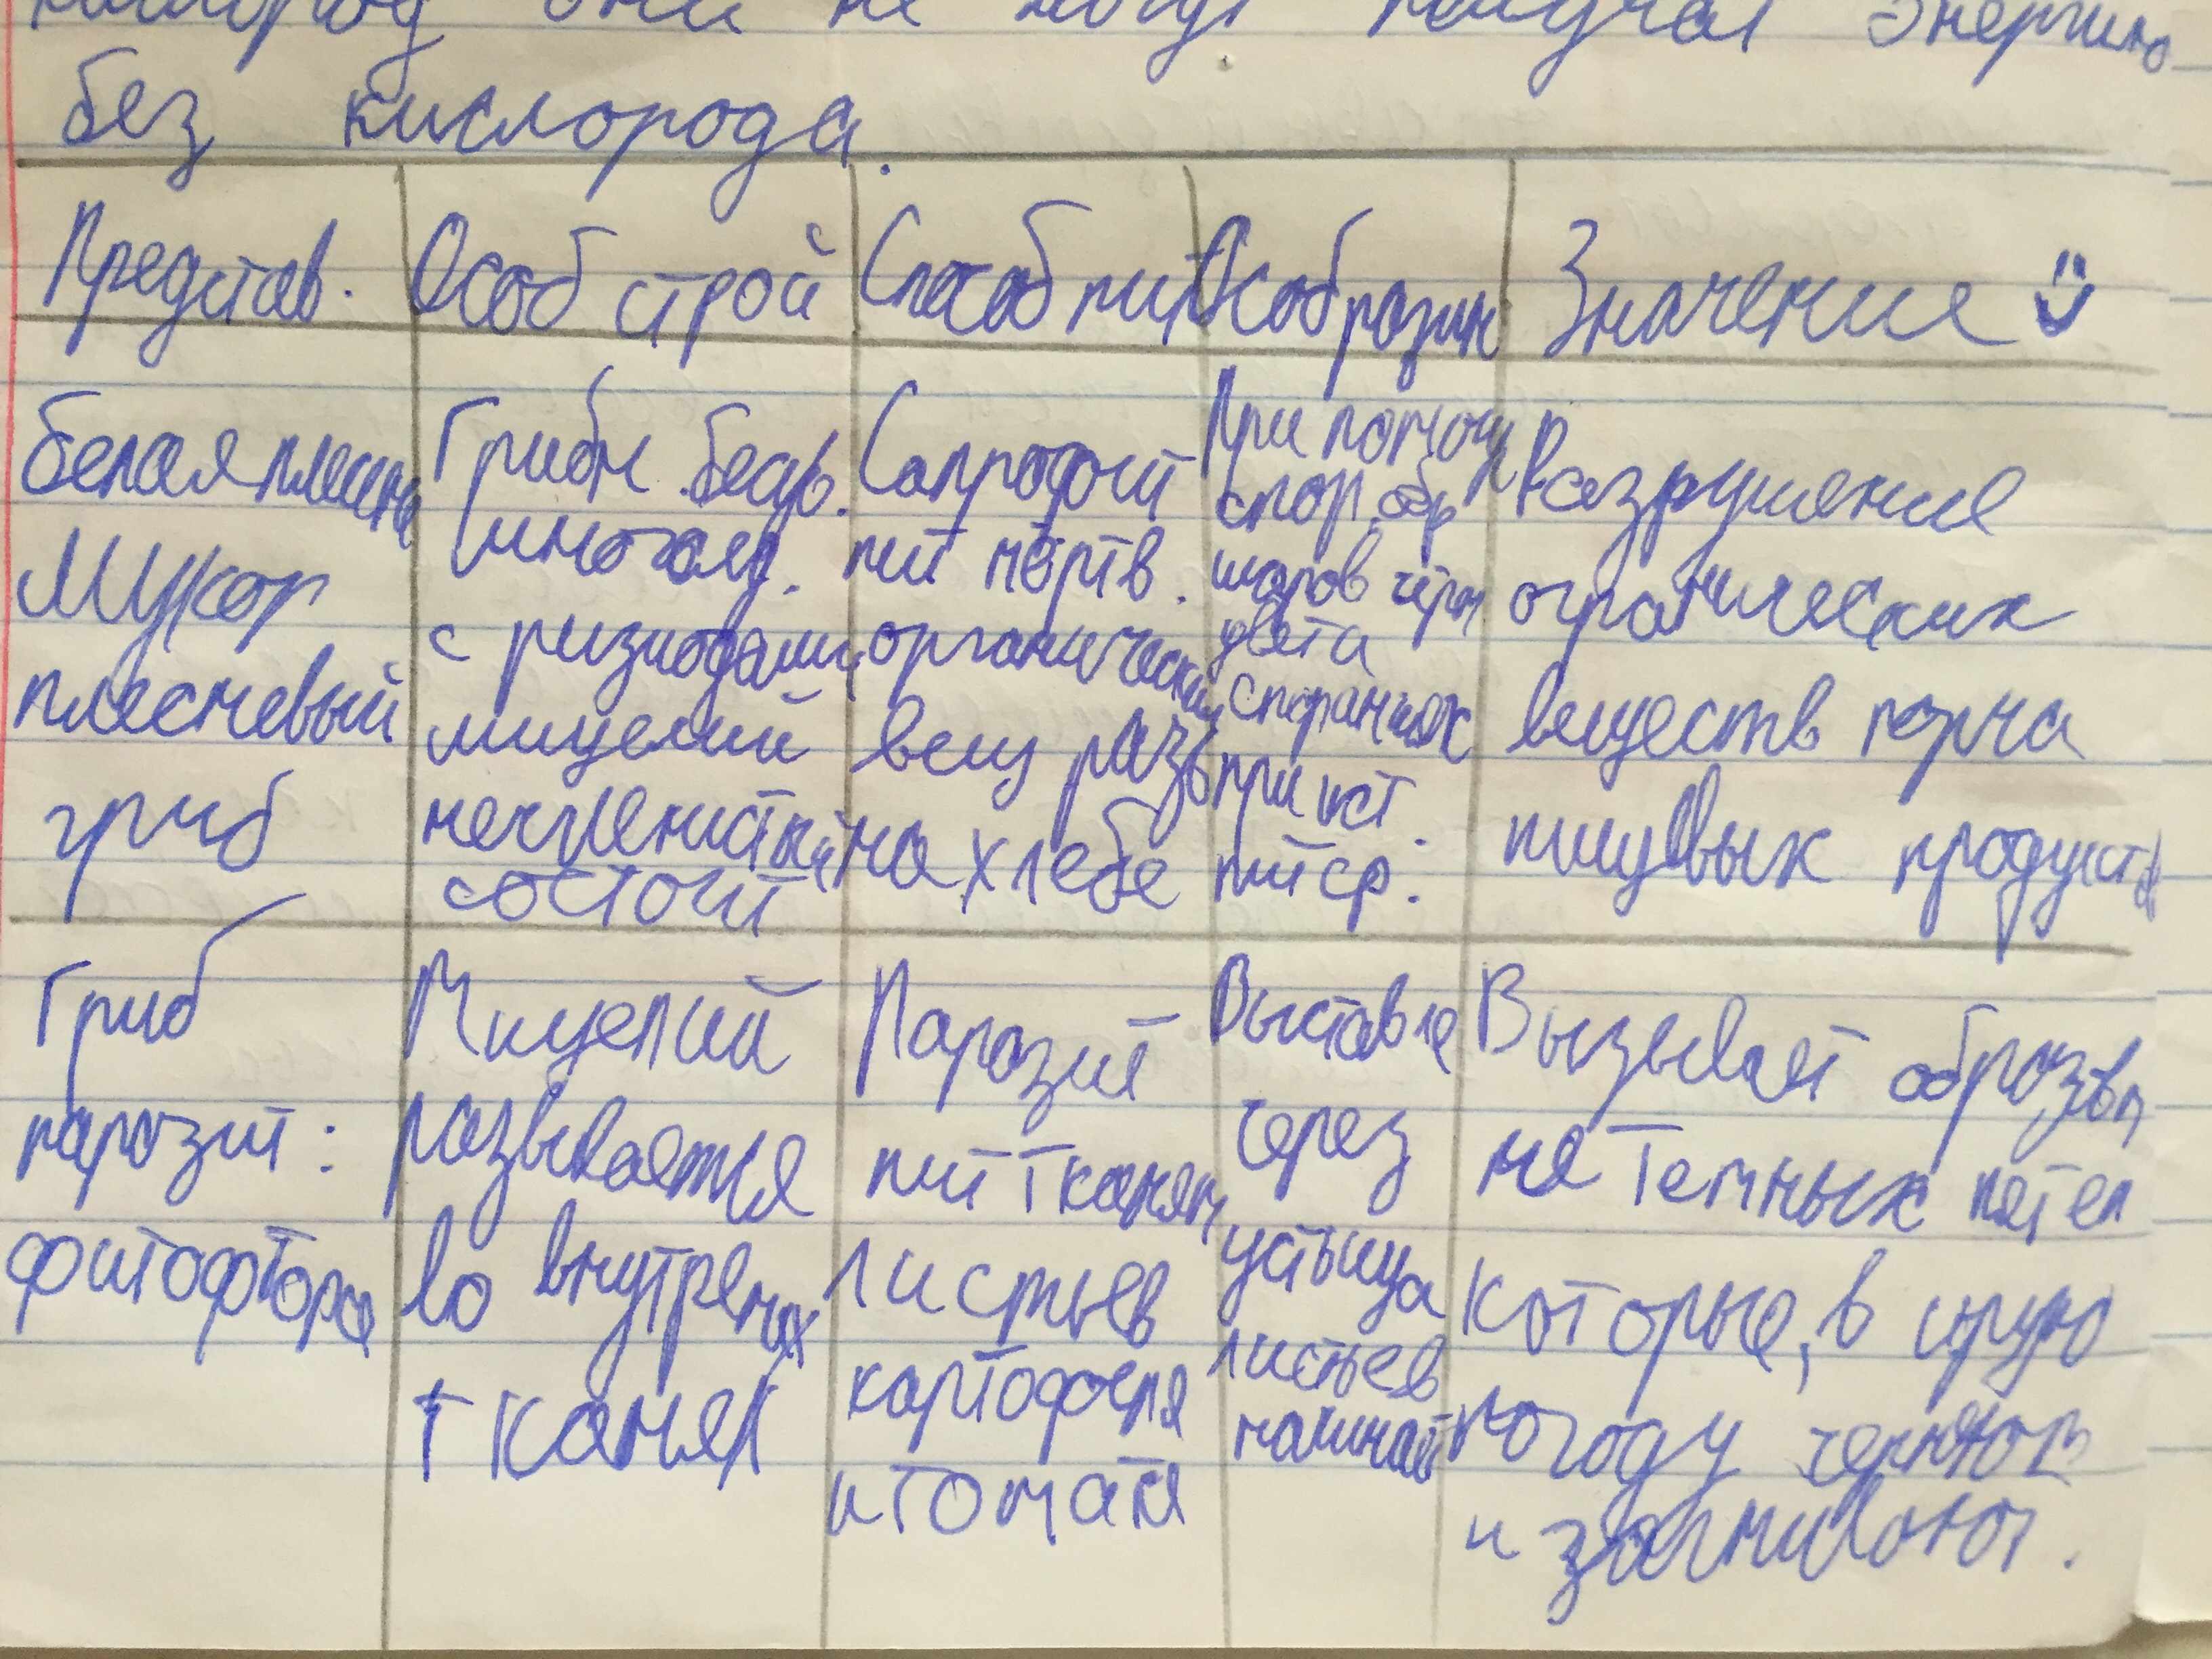 кислород они не могут получал энергию
без кислорода.
Представ. Особ строй Способ пит Особ розмн Значение
белая плесень
Мукор
плесневый
гриб
Грибн. бесцв.
многояд.
с ризиодами,
мицелий
нечленистый
состоит
Сапрофит
пит мёртв.
органически
вещ разв
на хлебе
При помощи
спор, обр
шаров чёрн
цвета
спорангиях
при ист.
пит ср.
Разрушение
огранических
веществ порча
пищевых продуктов
Гриб
паразит:
фитофтора
Мицелий
развивается
во внутрених
тканях
Паразит
пит тканям
листьев
картофеля
и томата
Выставле
через
устьица
листьев
начинает
Вызывает образов
ня темных пятен
которые, в сырую
погоду чернеют
и загнивают.